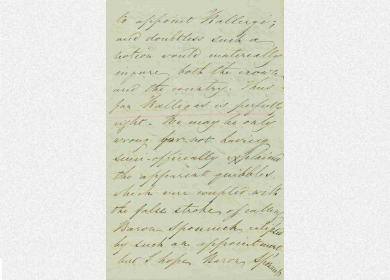 to appoint Kallergi;
and doubtless such a
notion would materially
injure both the crown
and the country. Thus
far Kallergis is perfectly
right. He may be only
wrong for not having
semi-officially explained
the apparent quibbles
which were coupled with
the false stroke of calling
Baron
by such an appointment,
but I hope Baron